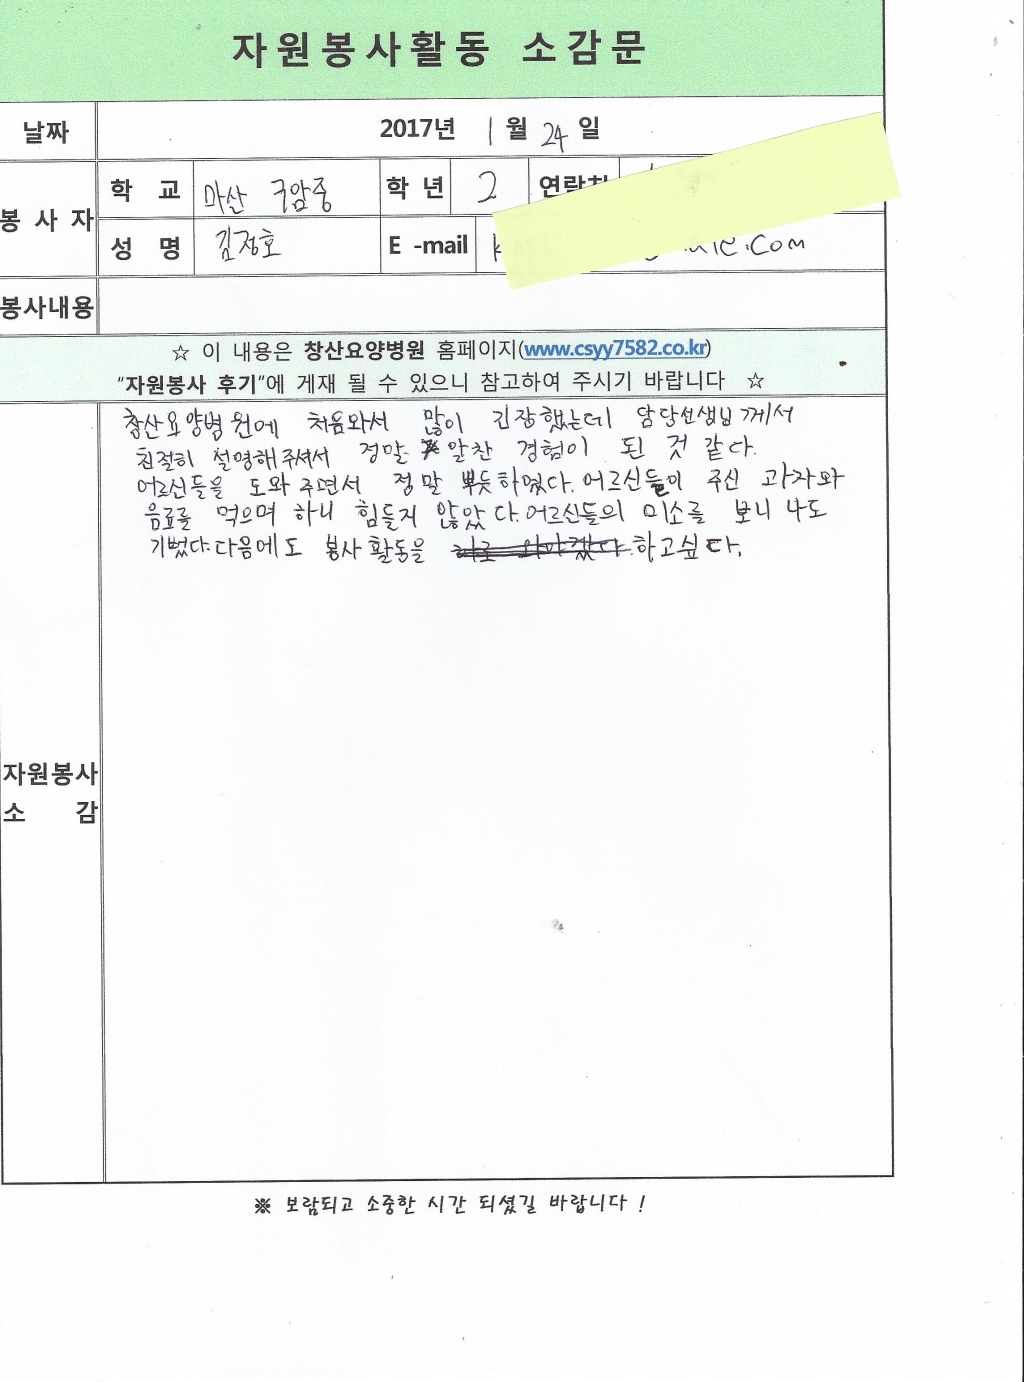 자원봉사활동 소감문
날짜 2017년 1월 24일
봉사자 학 교 마산 구암중 학 년 2 연락처
성 명 김정호 E -mail .com
봉사내용
☆ 이 내용은 창산요양병원 홈페이지(www.csyy7582.co.kr)
"자원봉사 후기"에 게재 될 수 있으니 참고하여 주시기 바랍니다 ☆
창산요양병원에 처음와서 많이 긴장했는데 담당선생님께서
친절히 설명해주셔서 정말 알찬 경험이 된 것 같다.
어르신들을 도와 주면서 정말 뿌듯하였다. 어르신들이 주신 과자와
음료를 먹으며 하니 힘들지 않았다. 어르신들의 미소를 보니 나도
기뻤다. 다음에도 봉사활동을 하고싶다.
자원봉사
소 감
※ 보람되고 소중한 시간 되셨길 바랍니다 !